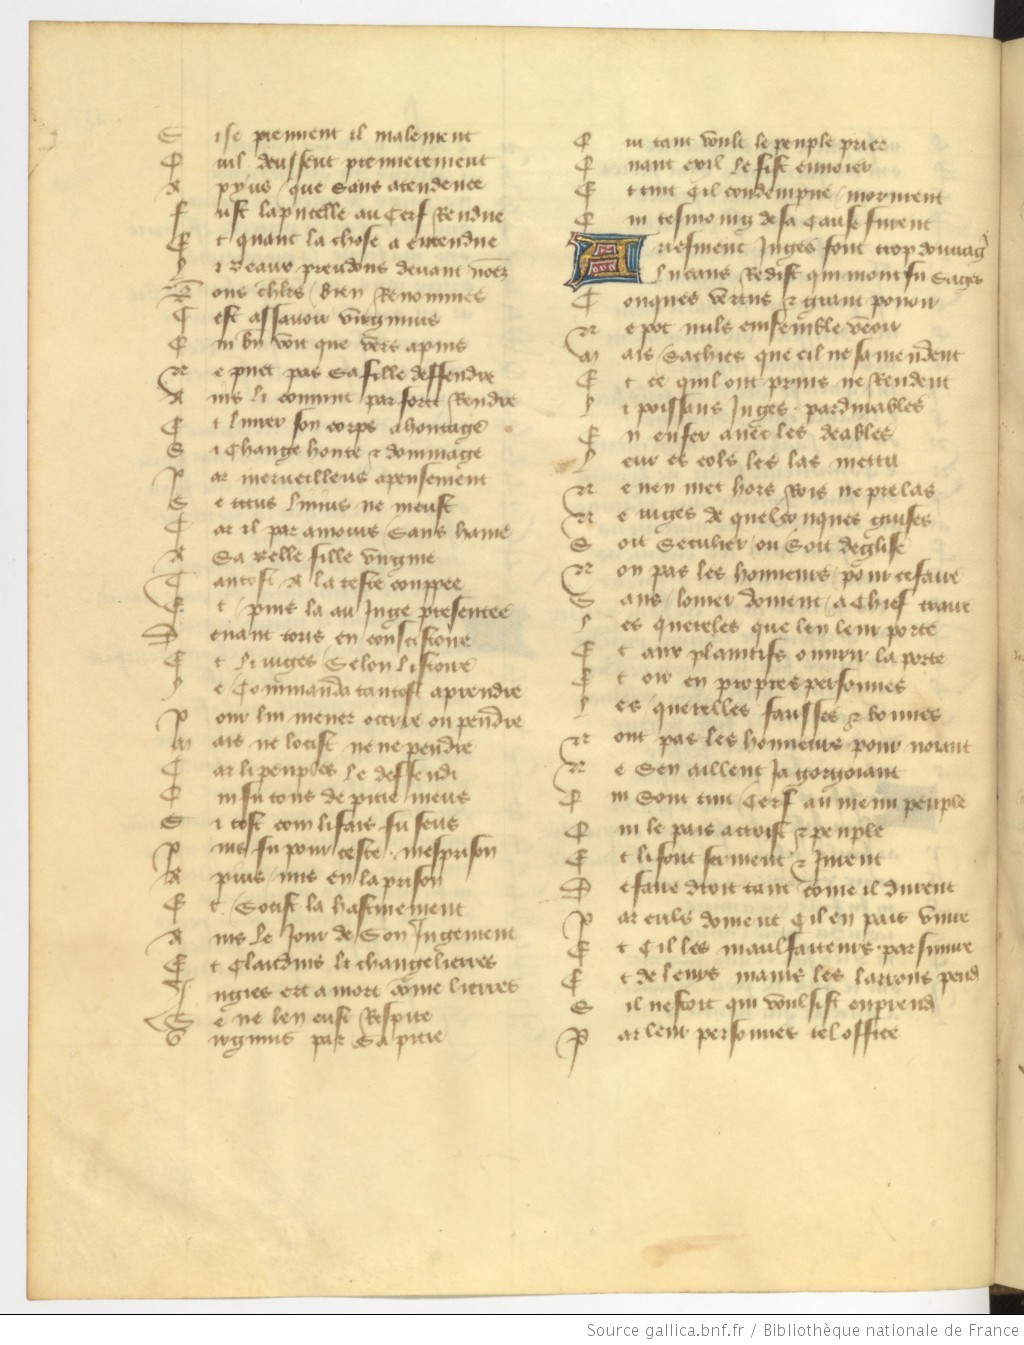 S ise prennent il malement
Q uil deussent premierement
A pyus / que sans atendence
F ust la pucelle au Cerf Rendue
E t quant la chose a entendue
L i beaux preudons devant
ons chlrs / bien Renommes
C est assavoir virginius
Q ui bn voit que vers apius
N e puet pas sa fille deffendre
A ins li convint par force Rendre
E t livrer son corps a hontage
S i change honte & dommage
P ar merveilleus apensement
S e titus livius ne ment
C ar il par amours sans haine
A Sa belle fille virgine
T antost A la teste couppee
E t / puis la au Juge presentee
D evant tous en consistoire
E t li iuges / Selon listoire
L e Commanda tantost a prendre
P our lui mener occire ou pendre
M ais ne locist ne ne pendre
C ar li peuples le deffendi
Q ui fu tous de pitie meus
S i tost com li fais fu seus
P uis fu pour ceste mesprison
A pius / mis en la prison
E t / Socist la hastivement
A ins le Jour de Son Jugement
E t Claudius li changelierres
J ugies ert a mort come lierres
S e ne len eust Respite
V irginius par Sa pitie
Q ui tant voult le peuple prier
Q uant exil le fist envoier
E t tuit Cil condempne / morurent
Q ui tesmoing de sa Cause furent
A riesment Juges font trop doutrag
Lucans Redist qui moult fu Sages
C onques vertus & grant pooir
N e pot nuls ensemble veoir
M ais / Sachies que cil ne samendent
E t ce quil ont prins ne Rendent
L i poissans Juges pardurables
E n enfer avec les deables
L eur es cols les las mettra
N e nen met hors Rois ne prelas
N e iuges de quelconques guises
S oit Seculier / ou Soit deglise
N on pas les honneurs / pour ce faire
S ans / loiier doivent / a Chief traire
L es quereles que len leur porte
E t aux plaintifs ouvrir la porte
E t oir en propres personnes
L es querelles fausses & bonnes
N ont pas les honneurs pour noiant
N e Sen aillent Ja gorgoiant
Q ui Sont tuit / Cerf au menu peuple
Q ui le pais acroist & peuple
E t li font serment & Jurent
D e faire droit tant come il durent
P ar euls doivent Cil en pais vivre
E t Cil les maulfaiteurs parsuivre
E t de leurs mains les larrons pend
S il nestoit qui voulsist enprend
P ar leur personnes tel office
Source gallica.bnf.fr / Bibliothèque nationale de France